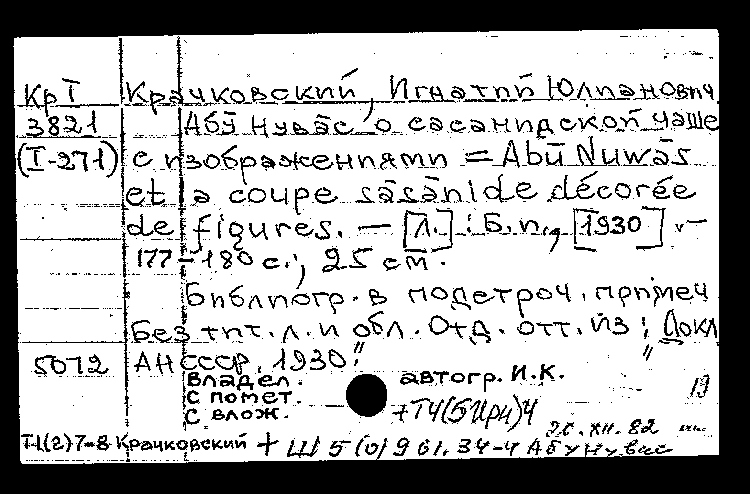 КрI Крачковский, Игнатий Юлианович
3821 Абӯ Нувāс о сасанидской чаше
(I-271) с изображениями = Abū Nuwās
et la coupe sāsānide décorée
de figures. — [Л.] : Б.и., [1930] . —
177-180 с.; 25 см.
Библиогр. в подстроч. примеч
Без тит. л. и обл. Отд. отт. из: "Докл
5072 АН СССР, 1930."
Владел. автогр. И.К.
С помет. 19
С влож. +Т4(5Ирн)4
XII. 82
Т1(2)7-8 Крачковский + Ш5(0)9 61.34-4 Абу Нувас